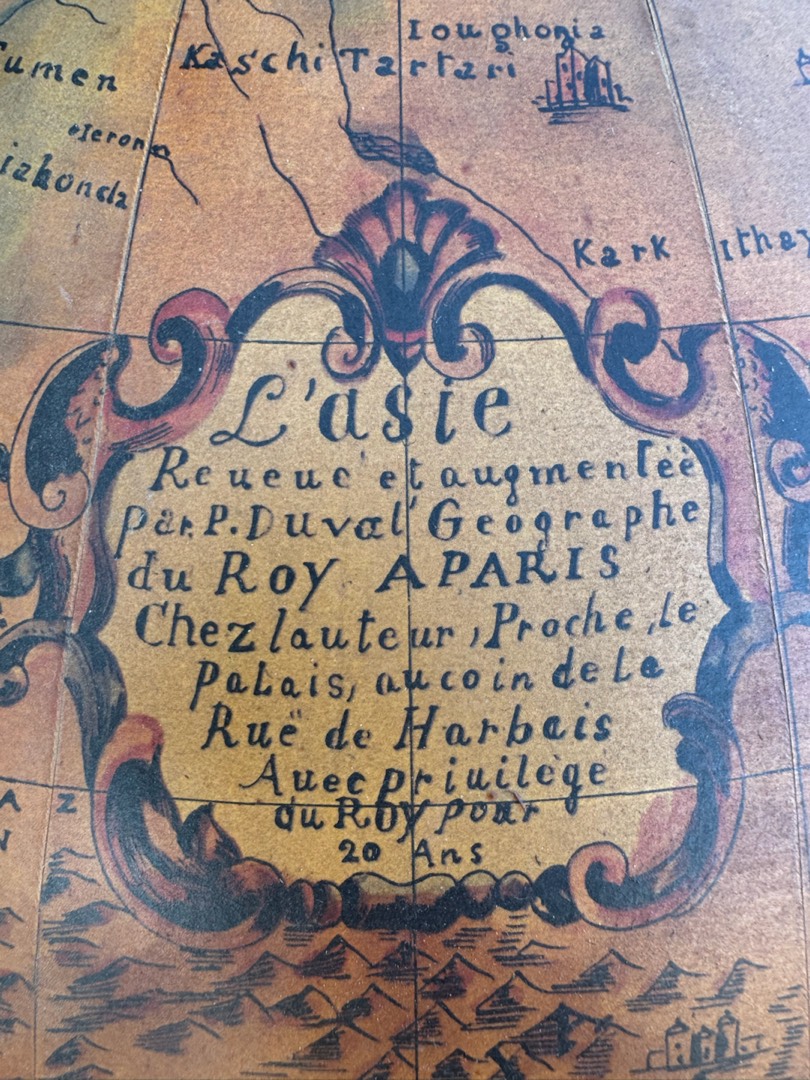 Ioughonia
Kaschi Tartari
umen
Ieroma
iakonda
Kark
Ithay
L'asie
Reueue et augmenteë
par P. Duval Geographe
du Roy A PARIS
Chez lauteur, Proche, le
Palais, au coin de La
Ruë de Harbais
Auec priuilege
du Roy pour
20 Ans
A Z